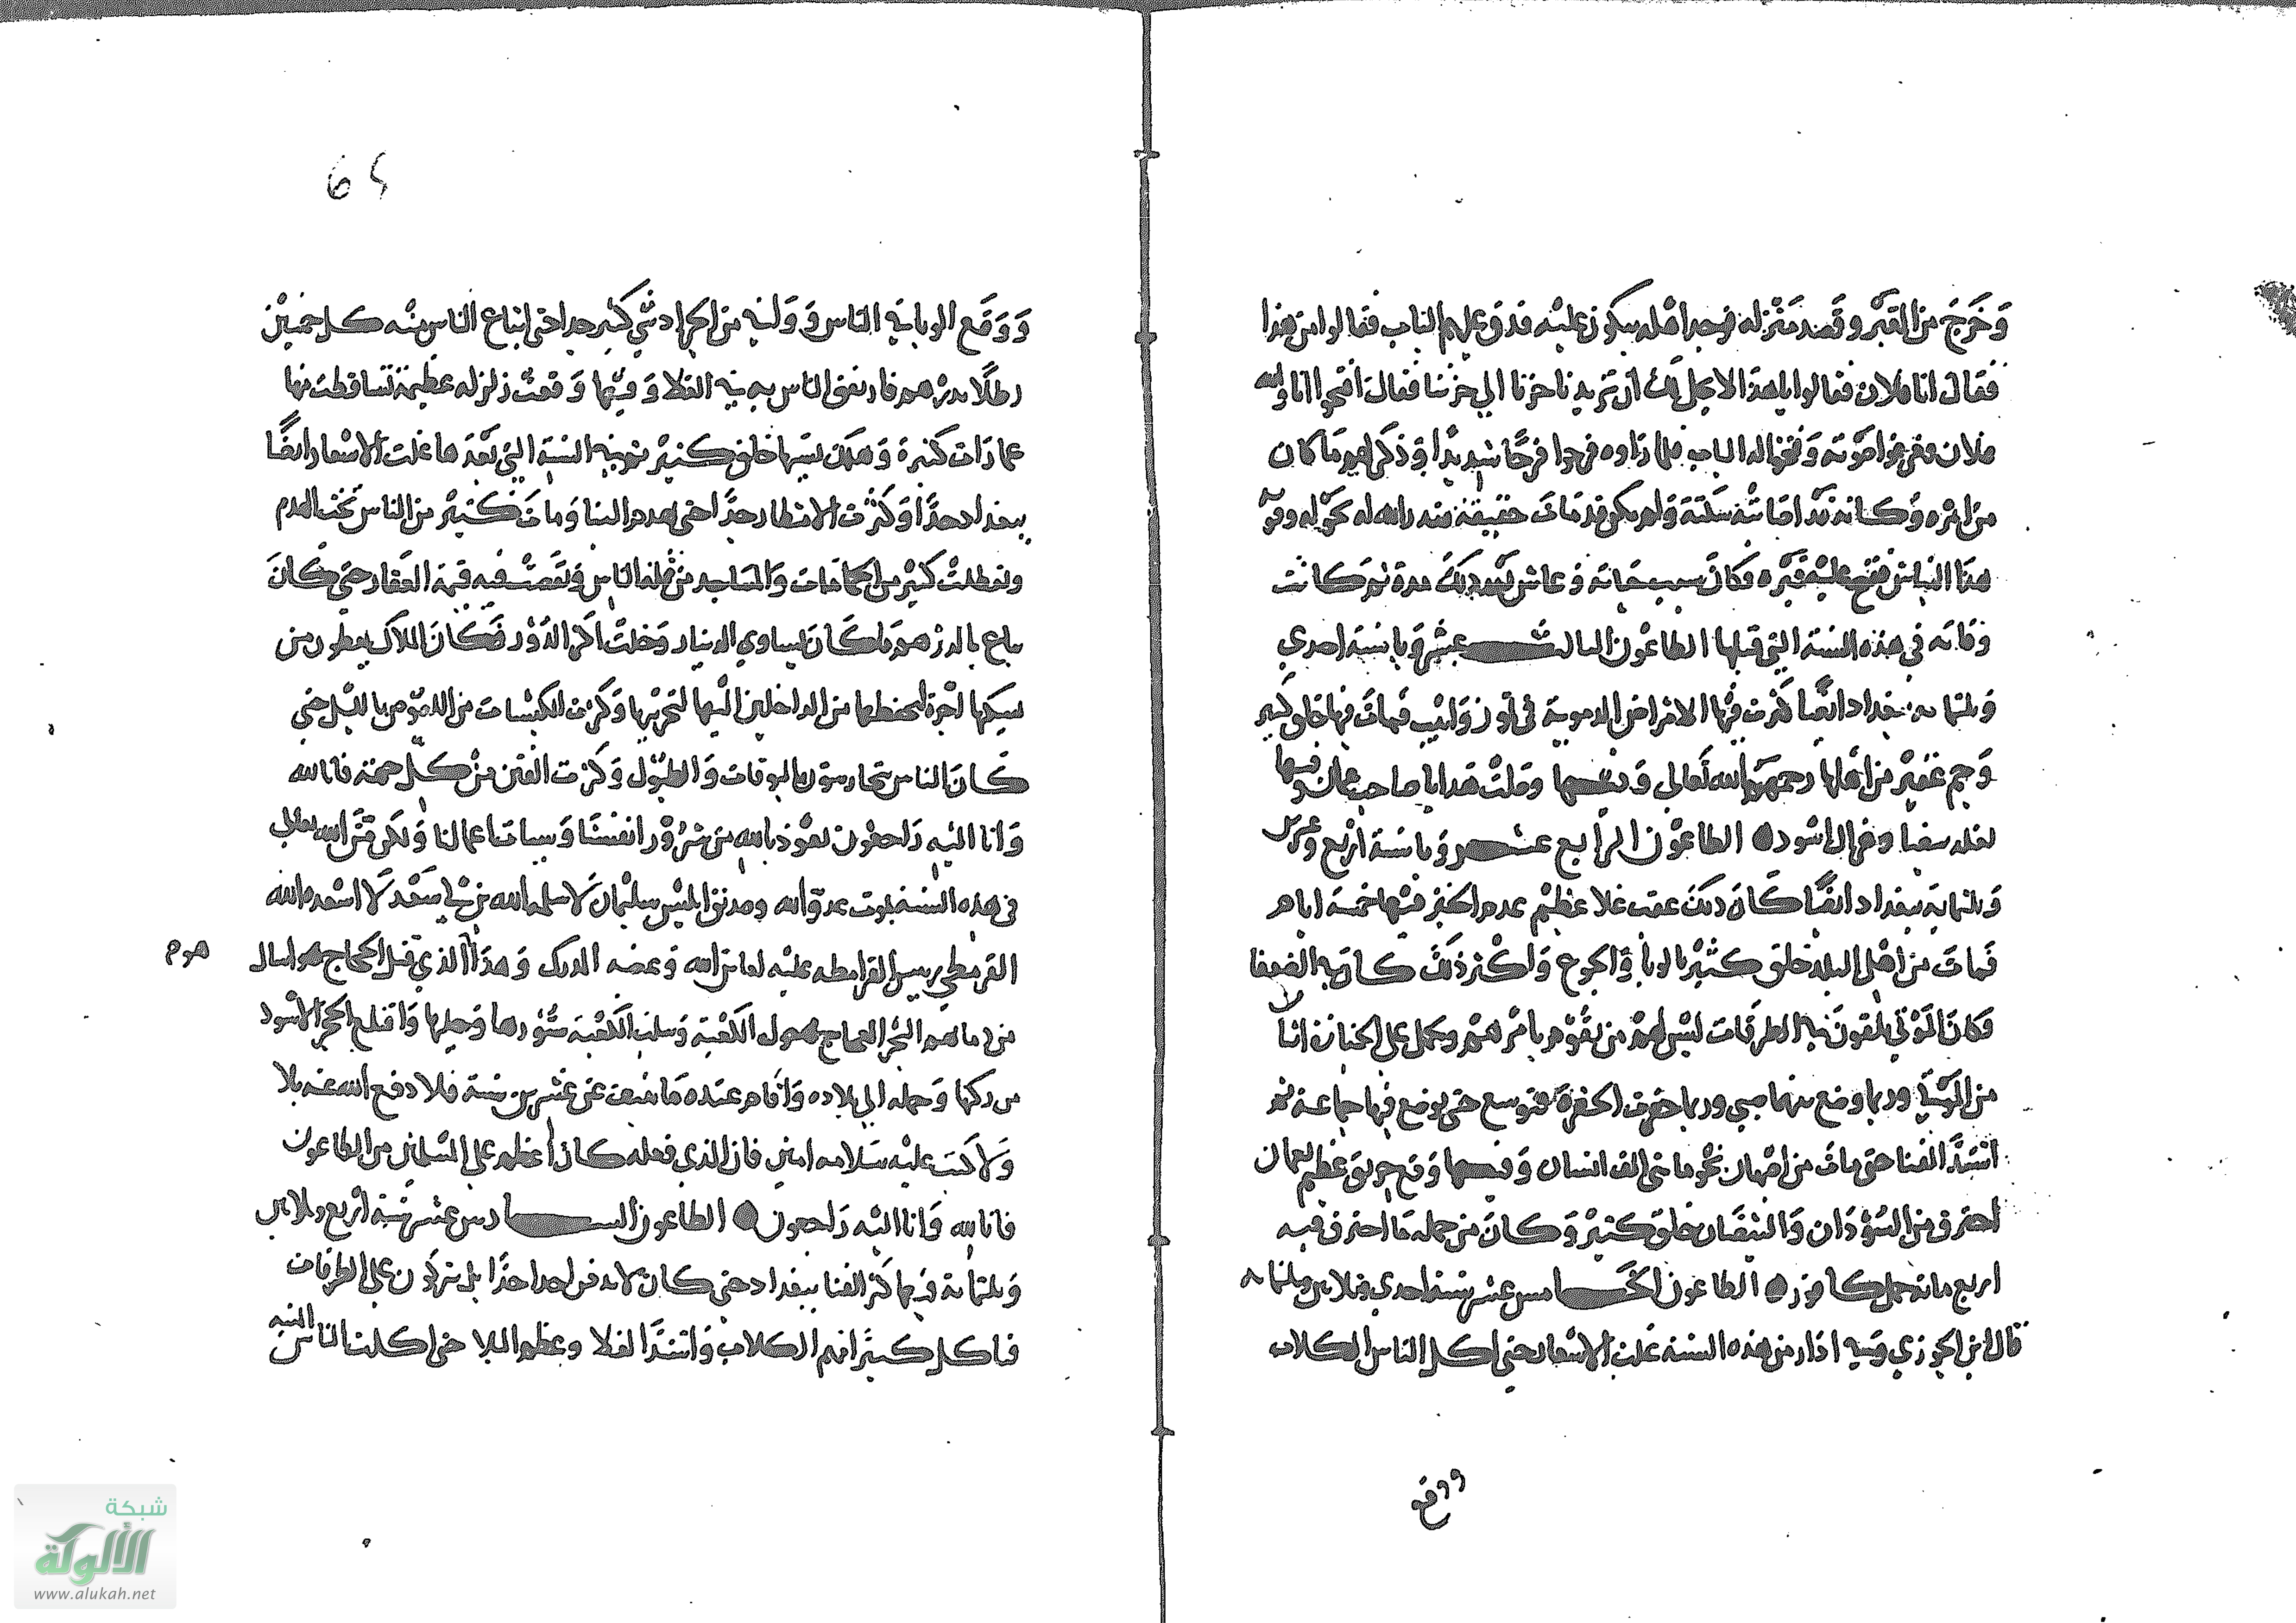 وَخَرَجَ من القَبْر وقَصد مَنْزله فوجد اهله يبكون عليْه فدق عليهم الباب فقالوا من هذا
فقال انا فلان فقالوا يا هذا لا يحل لك أن تزيدنا حزنا الي حزننا فقال افتحوا انا والله
فلان فعرفوا صوته وَفتحوا له الباب فلما رَاوه فرحوا فرحًا شديدًا وذكر لهم مَا كان
من امره وَكانه قد اصَابته سَكتة وَلم يكن قد مَات حقيقة فقدر الله له نحوله وقوم
هذا النباش ففتح عليْه قبْره فكانَ سبب حَياته وعاش بعد ذلك مدة ثم كانت
وَفاته في هذه السّنة التي قبلها الطاعون الثالث عشر وَفي سنة احدي
وَثلثمايه ببغداد ايْضًا كثرت فيْها الامْراض الدموية في تموز وَابيب فمات فيها خلق كثير
وَجم غفير من اهلها رحمهم الله تعالي وَفيها وصلتْ هَدايا صاحب عمان وفيها
بغله بيضا وغزال اسْود الطاعوْن الرَّابع عشر وَفي سنة ارْبع وعشرين
وَثلثمايَة ببغداد ايْضًا كان ذلك عقب غلا عظيْم عدم الخبز فيْها خمسَة ايام
فَماتَ من اهل البلد خَلق كثيْر بالوبا وَالجوع وَاكثر ذلك كان في الضعفا
فكانَ الموْتي يلقون في الطرقات ليْس لهم من يقُوْم بامْرهم ويحمل على الجنازة اثنان
من الموتي وربما وضع بينهما صبي وربما حفرت الحفرة فتوسع حتى يوضع فيها جماعة ثم
اشتدّ الفنا حتى مات من اصْبهان نحو مايتي الف انسان وَفيها وَقع حريق عظيم بعمان
احترق من السُّوْدَان وَالبيْضان خلق كثيْر وَكان من جملة مَا احترق فيه
اربع ماية حمل كافور الطاعون الخامس عشر سنة احدي وثلاثين وثلثمايه
قال ابن الجوزي وَفي اذار من هذه السّنة غلت الاسْعار حتي اكل الناس الكلاب
ووقع
64
وَوَقَع الوبا في الناس وَوَلي في من الجراد شي كثير جدا حتى ابتاع الناس منه كل خمسين
رطلًا بدرْهم فارتفق الناس به في الغلا وَفيْها وَقعتْ زلزله عظيمة تساقطت منها
عمارَات كثيرة وَهلك بسَببها خلق كثيْر ثم في السّنة التي بعْدَها غلت الاسْعار ايضًا
ببغداد جدًا وَكثرت الامْطار جدًّا حتى هدم البنا وَمات كثيْر من الناس تحت الهدم
وتعطلتْ كثيْر من الحمامات وَالمساجد من قلة الناس وَنقصتْ فيه قيمة العقار حتى كانَ
يباع بالدرْهم مَا كانَ يساوي الدينار وَخلت اكثر الدّوْر فكانَ الملاك يعطون من
يسكنها اجْرة ليحفظها من الداخلين اليْها لتخرْيبها وَكثرت الكبسات من اللصُوْص بالليْل حتي
كانَ الناس يتحارسون بالبوقات وَالطبوْل وَكثرت الفتن من كل جهة فانا لله
وَانا اليْه رَاجعون نعوْذ بالله من شروْر انفسنَا وَسيات اعمالنا وَلكن قدّر الله تعالي
في هذه السّنة بموت عدوّ الله وصديق ابليْس سليْمان لا سلمه الله بن ابي سَعْد لَا اسْعده الله
القرمطي رييس القرامطه عليْه لعاين الله وَغضبه الدرك وَهذا الذي قتل الحجاج واسال هوم
من دماهم البحر العجاج حول الكعْبة وَسلب الكعْبة ستُوْرها وَحليها وَاقتلع الحجر الاسْود
من ركنها وَحمله الي بلاده وَاقام عنْده مَا نيف عن عشرين سنة فلا دفع الله عنه بلا
وَلا كتب عليْه سَلامه امين فان الذي فعله كان اعظم علي المسْلمين من الطاعون
فانا لله وَانا اليْه رَاجعون الطاعون السادس عشر سَنة ارْبع وثلاثين
وَثلثماية فيْها كثر الفنا ببغداد حتى كان لا يدفن احد احدًا بل يتركوْن علي الطرقات
فياكل كثيرًا منهم الكلاب وَاشتدّ الغلا وعظم البلا حتى اكلت الناس الميته
شبكة
الألوكة
www.alukah.net